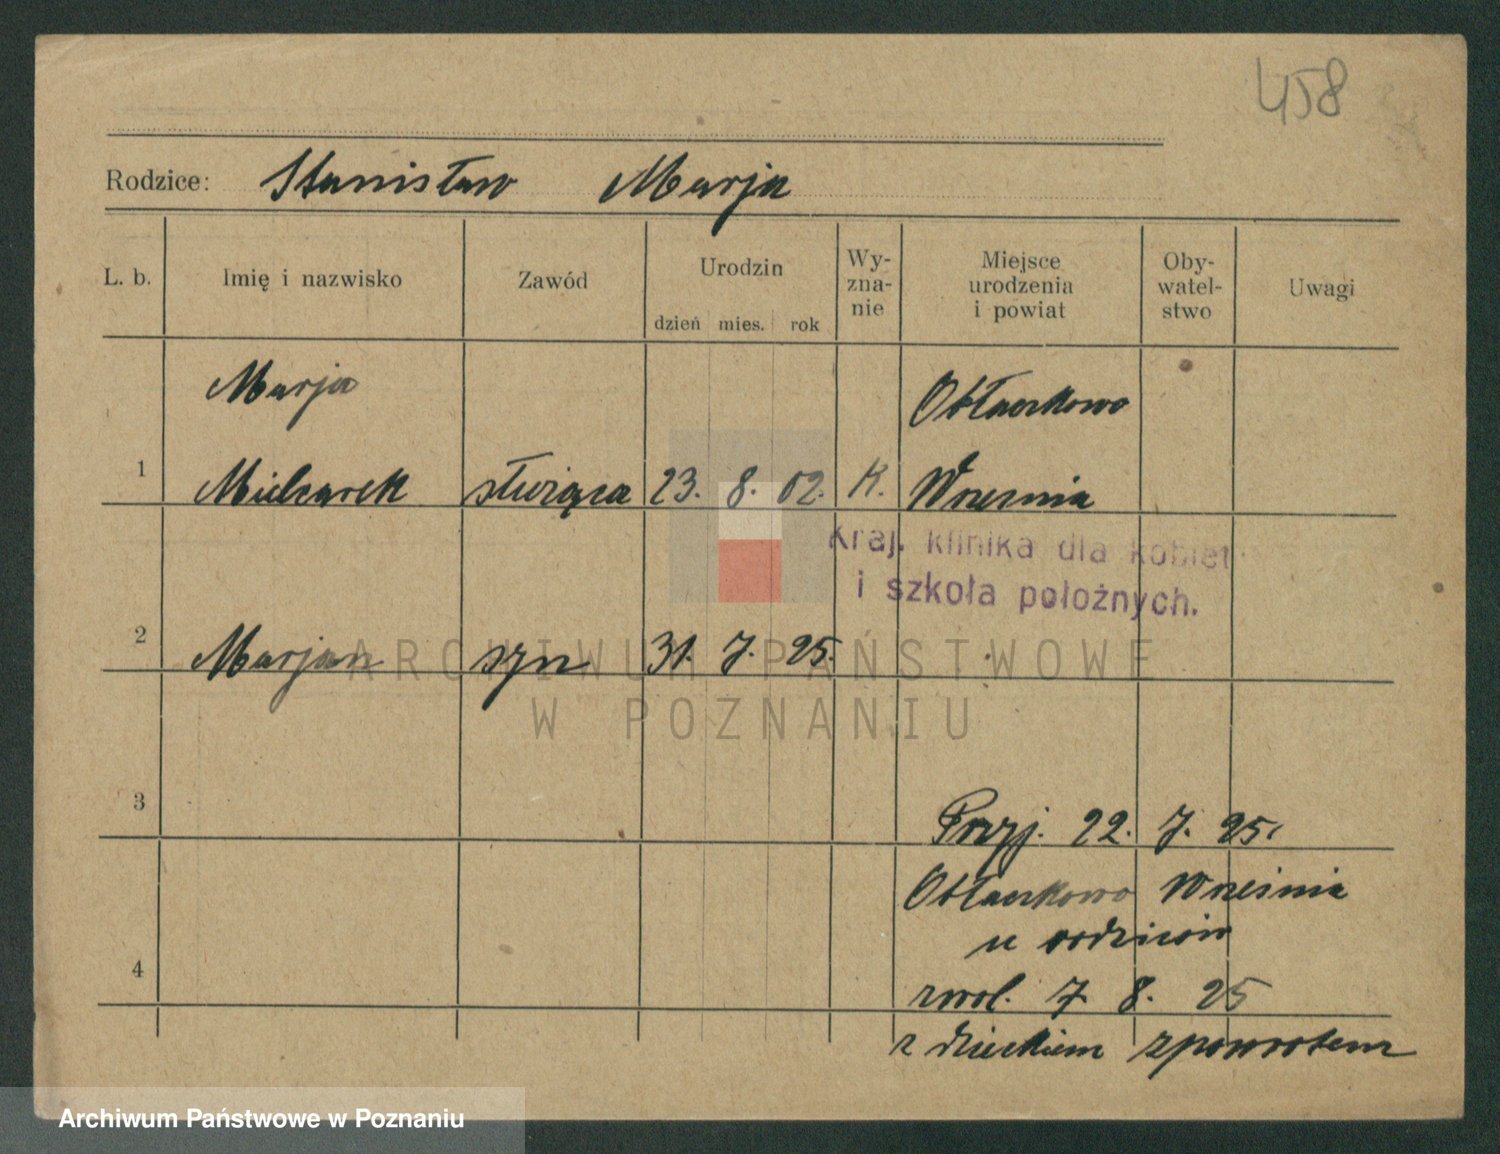 458
Rodzice: Stanisław Marja
L. b. Imię i nazwisko Zawód Urodzin dzień mies. rok Wy-zna-nie Miejsce urodzenia i powiat Oby-watel-stwo Uwagi
Marja Obłaczkowo
1 Mielcarek służąca 23. 8. 02. K. Wrzesnia
Kraj. klinika dla kobiet
i szkoła położnych.
2 Marjan syn 31. 7. 25.
ARCHIWUM PAŃSTWOWE
W POZNANIU
3 Przyj. 22. 7. 25.
Obłaczkowo Września
u rodziców
4 zwol. 7 8. 25
z dzieckiem zpowrotem
Archiwum Państwowe w Poznaniu